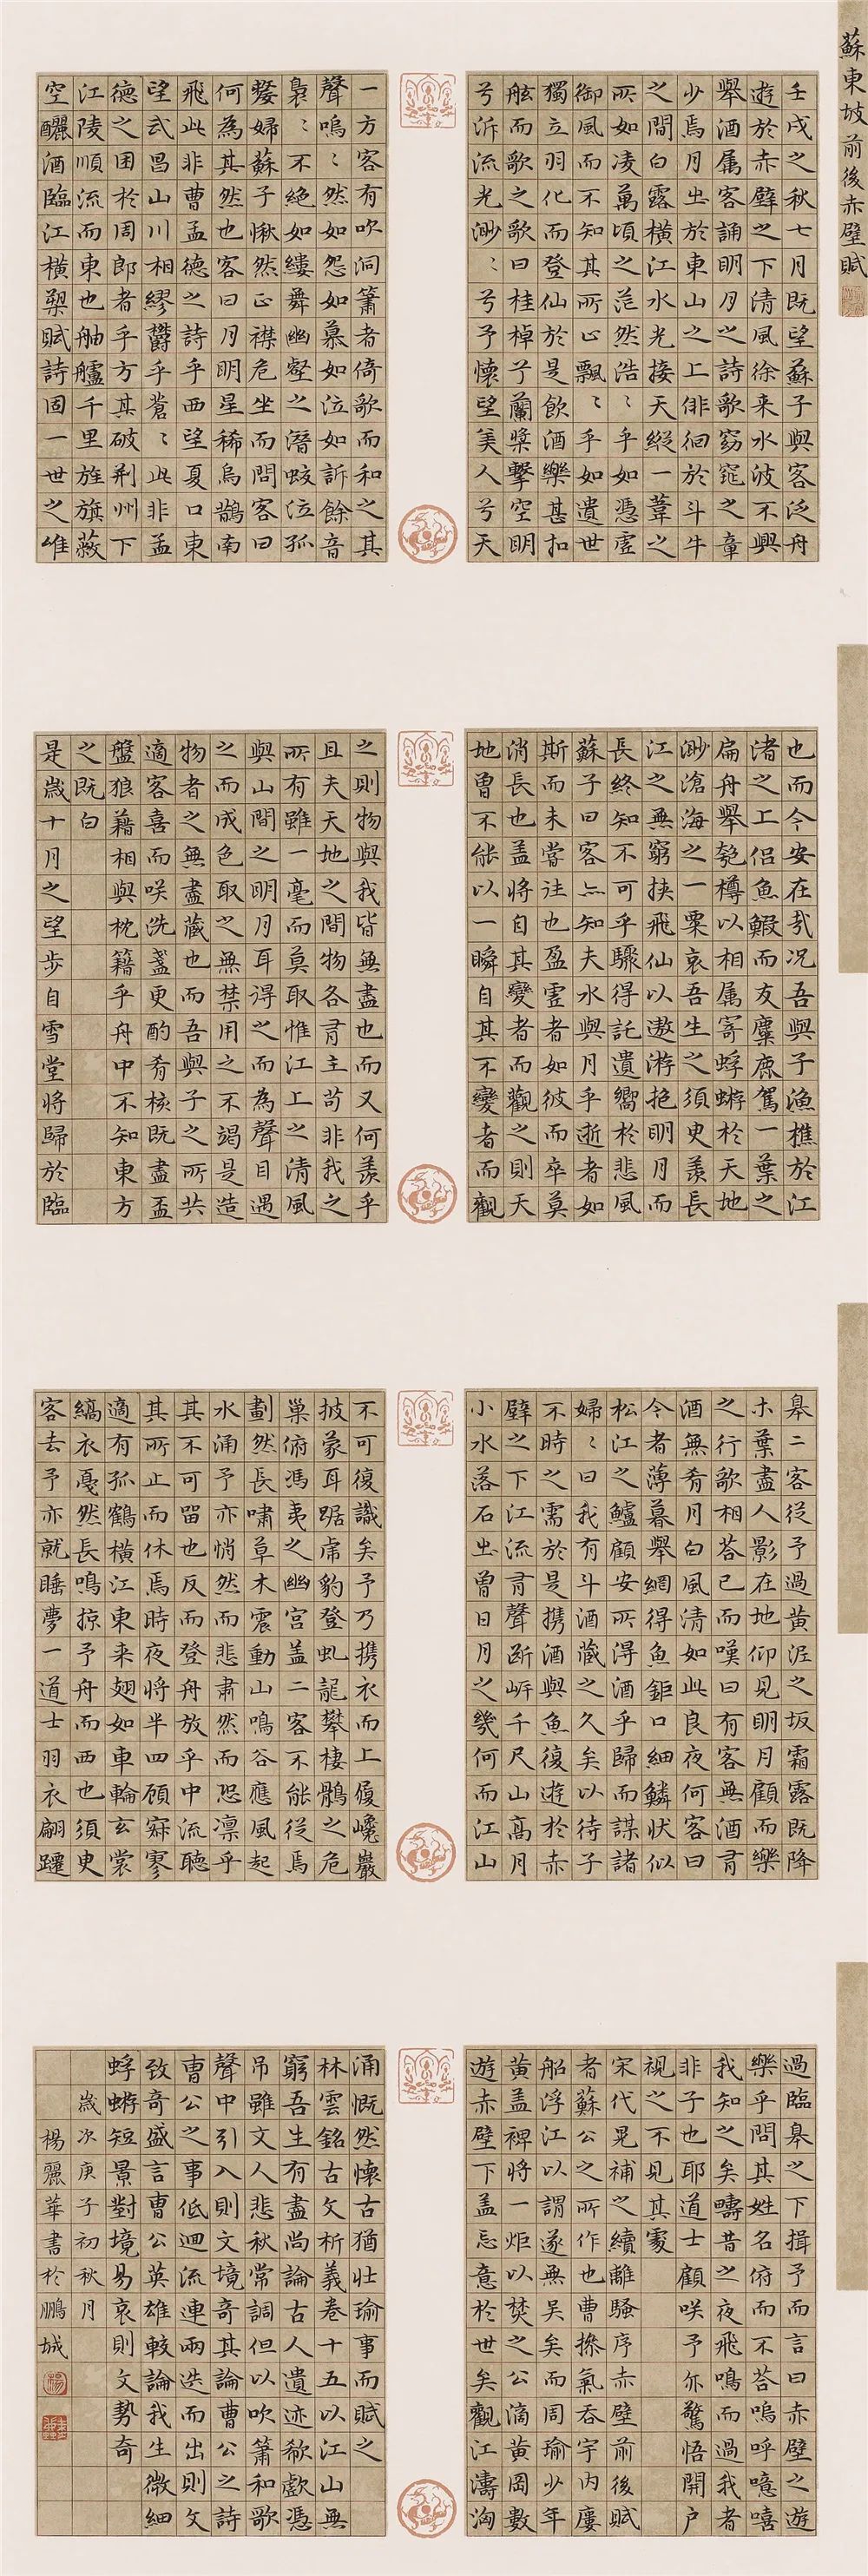 蘇東坡前後赤壁賦
壬戌之秋七月既望蘇子與客泛舟
遊於赤壁之下清風徐来水波不興
舉酒属客誦明月之詩歌窈窕之章
少焉月出於東山之上俳徊於斗牛
之間白露横江水光接天縱一葦之
所如凌萬頃之茫然浩〻乎如憑虚
御風而不知其所止飄〻乎如遺世
獨立羽化而登仙於是飲酒樂甚扣
舷而歌之歌曰桂棹兮蘭槳擊空明
兮泝流光渺〻兮予懷望美人兮天
一方客有吹洞簫者倚歌而和之其
聲嗚〻然如怨如慕如泣如訴餘音
裊〻不絶如縷舞幽壑之潛蛟泣孤
嫠婦蘇子愀然正襟危坐而問客曰
何為其然也客曰月明星稀烏鵲南
飛此非曹孟德之詩乎西望夏口東
望武昌山川相繆鬱乎蒼〻此非孟
德之困於周郎者乎方其破荆州下
江陵順流而東也舳艫千里旌旗蔽
空釃酒臨江横槊賦詩固一世之雄
也而今安在哉况吾與子漁樵於江
渚之上侣魚鰕而友麋鹿駕一葉之
扁舟舉匏樽以相属寄蜉蝣於天地
渺滄海之一粟哀吾生之須臾羨長
江之無窮挟飛仙以遨游抱明月而
長終知不可乎驟得託遺響於悲風
蘇子曰客亦知夫水與月乎逝者如
斯而未嘗往也盈虚者如彼而卒莫
消長也盖將自其變者而觀之則天
地曾不能以一瞬自其不變者而觀
之則物與我皆無盡也而又何羨乎
且夫天地之間物各有主苟非我之
所有雖一毫而莫取惟江上之清風
與山間之明月耳得之而為聲目遇
之而成色取之無禁用之不竭是造
物者之無盡藏也而吾與子之所共
適客喜而咲洗盞更酌肴核既盡盃
盤狼藉相與枕籍乎舟中不知東方
之既白
是歲十月之望步自雪堂將歸於臨
皋二客從予過黄泥之坂霜露既降
木葉盡人影在地仰見明月顧而樂
之行歌相荅已而嘆曰有客無酒有
酒無肴月白風清如此良夜何客曰
今者薄暮舉網得魚鉅口細鱗状似
松江之鱸顧安所得酒乎歸而謀諸
婦〻曰我有斗酒藏之久矣以待子
不時之需於是携酒與魚復遊於赤
壁之下江流有聲断岸千尺山高月
小水落石出曾日月之幾何而江山
不可復識矣予乃携衣而上履巉巖
披蒙茸踞虎豹登虬龍攀棲鶻之危
巢俯馮夷之幽宫盖二客不能從焉
劃然長嘯草木震動山鳴谷應風起
水涌予亦悄然而悲肅然而恐凛乎
其不可留也反而登舟放乎中流聽
其所止而休焉時夜將半四顧寂寥
適有孤鶴横江東来翅如車輪玄裳
縞衣戛然長鳴掠予舟而西也須臾
客去予亦就睡夢一道士羽衣翩躚
過臨皋之下揖予而言曰赤壁之遊
樂乎問其姓名俯而不荅嗚呼噫嘻
我知之矣疇昔之夜飛鳴而過我者
非子也耶道士顧咲予亦驚悟開户
視之不見其處
宋代晃補之續離騷序赤壁前後賦
者蘇公之所作也曹操氣吞宇内廔
船浮江以謂遂無吴矣而周瑜少年
黄盖裨將一炬以焚之公滴黄岡數
遊赤壁下盖忘意於世矣觀江濤洶
涌慨然懷古猶壮瑜事而賦之
林雲銘古文析義卷十五以江山無
窮吾生有盡尚論古人遺迹欷歔憑
吊雖文人悲秋常調但以吹簫和歌
聲中引入則文境奇其論曹公之詩
曹公之事低迴流連兩迭而出則文
致奇盛言曹公英雄較論我生微細
蜉蝣短景對境易哀則文勢奇
歲次庚子初秋月
楊麗華書於鵬城